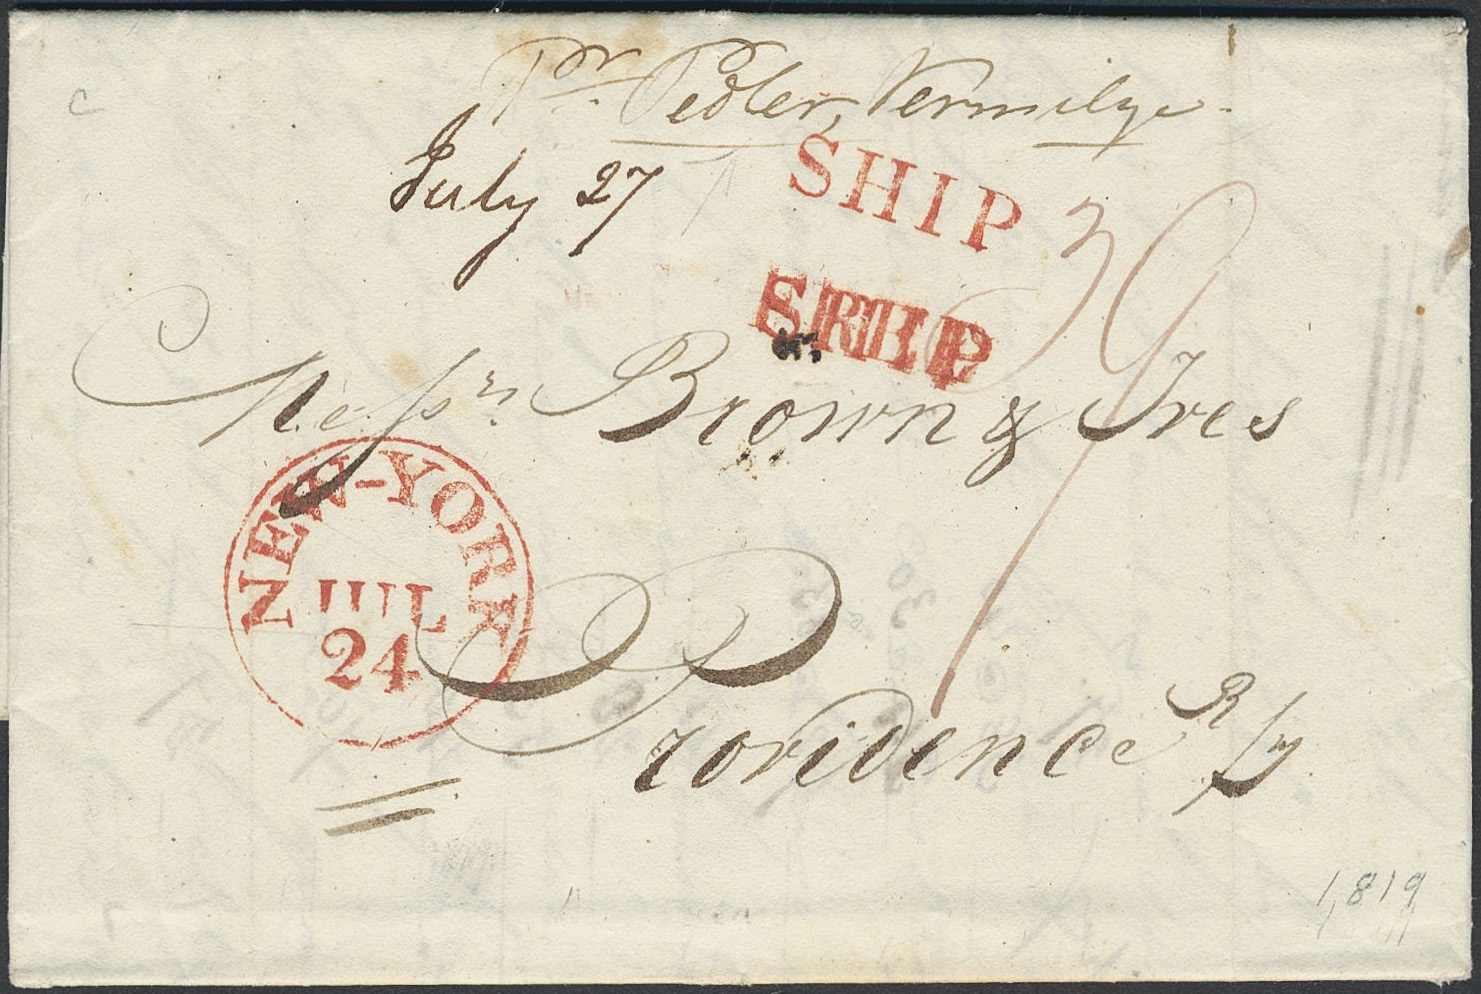 Pr. Pedler, Vermilye
July 27
SHIP
SHIP
39
Messrs Brown & Ives
NEW-YORK
JUL
24
Providence
1819